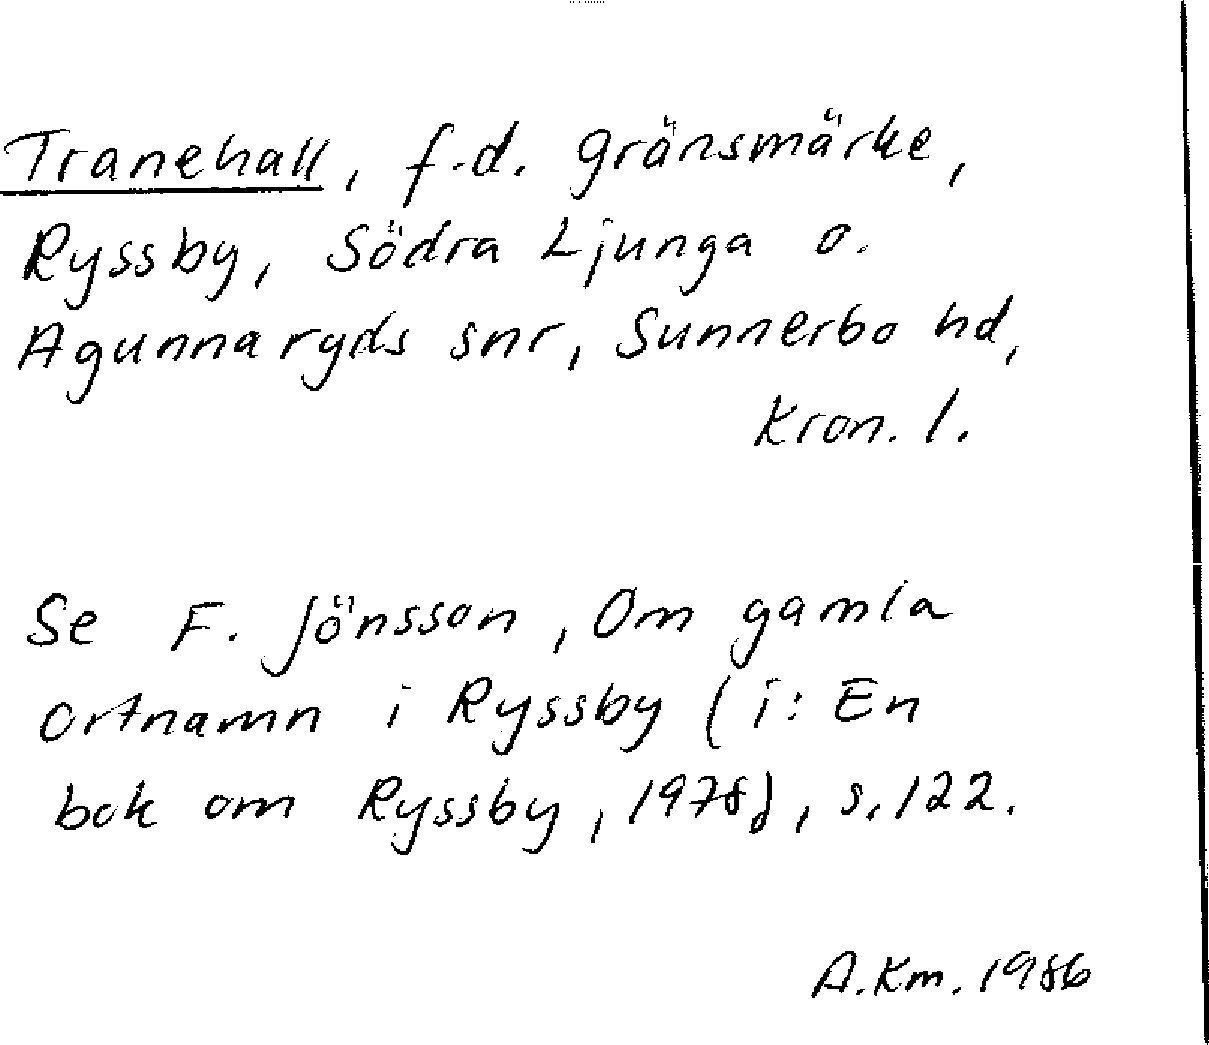 Tranehall, f.d. gränsmärke,
Ryssby, Södra Ljunga o.
Agunnaryds snr, Sunnerbo hd,
Kron. l.
Se F. Jönsson, Om gamla
ortnamn i Ryssby (i: En
bok om Ryssby, 1978), s. 122.
A.Km. 1986